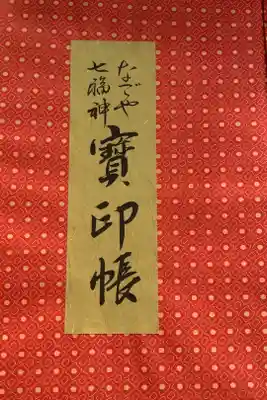 なでや
七福神
寶印帳